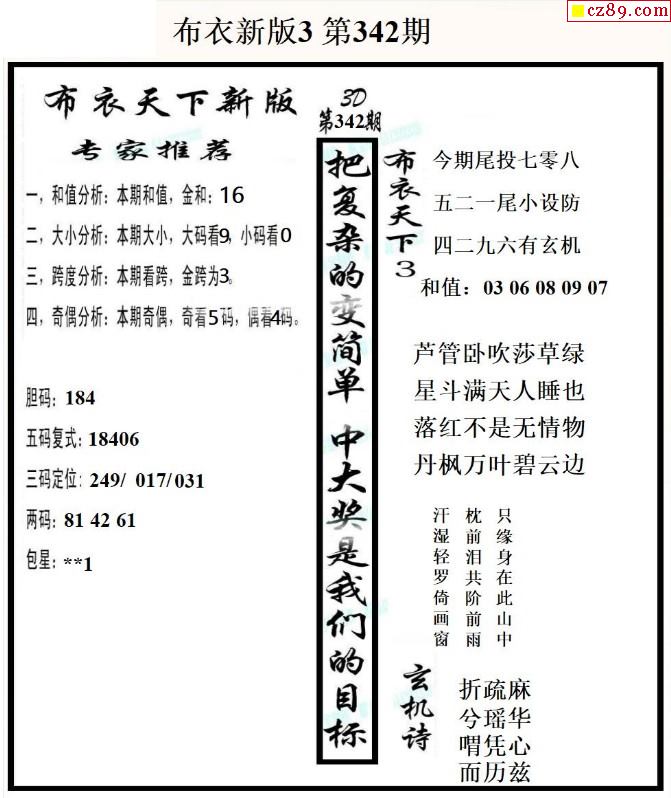 cz89.com
布衣新版3 第342期
布衣天下新版
专家推荐
一，和值分析：本期和值，金和：16
二，大小分析：本期大小，大码看9，小码看0
三，跨度分析：本期看跨，金跨为3。
四，奇偶分析：本期奇偶，奇看5码，偶看4码。
胆码：184
五码复式：18406
三码定位：249/ 017/031
两码：81 42 61
包星：**1
3D
第342期
把复杂的变简单 中大奖是我们的目标
布衣天下3
今期尾投七零八
五二一尾小设防
四二九六有玄机
和值：03 06 08 09 07
芦管卧吹莎草绿
星斗满天人睡也
落红不是无情物
丹枫万叶碧云边
只缘身在此山中
枕前泪共阶前雨
汗湿轻罗倚画窗
玄机诗
折疏麻
兮瑶华
喟凭心
而历兹